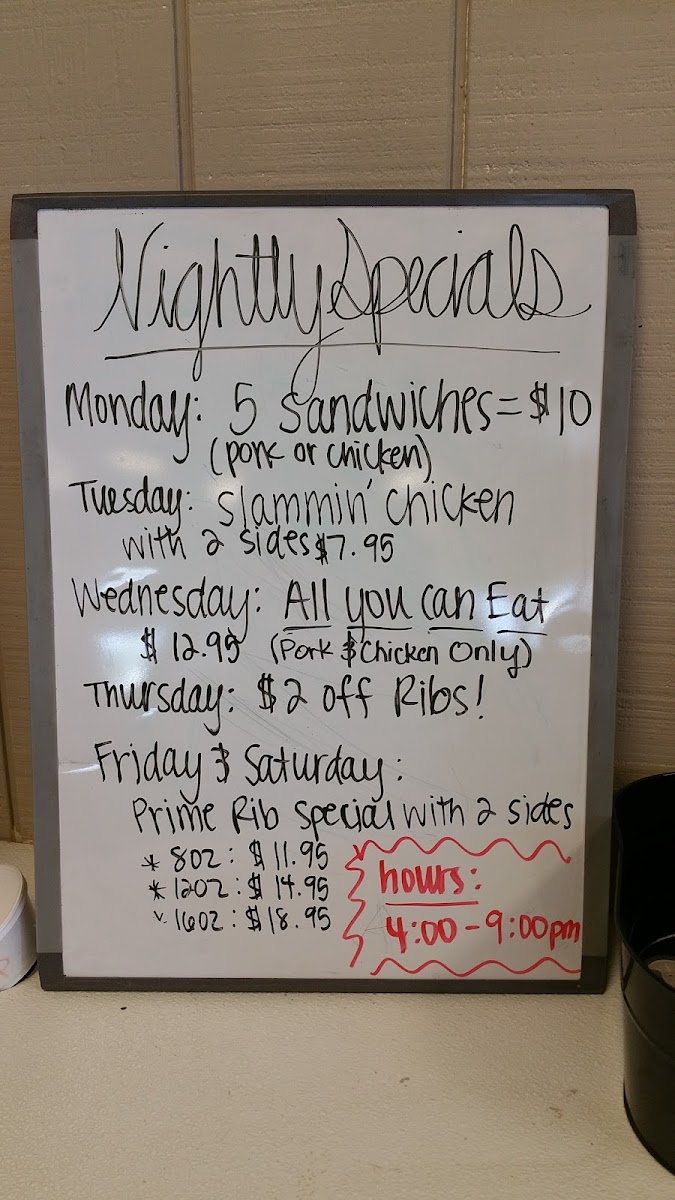 Nightly Specials
Monday: 5 Sandwiches = $10
(pork or chicken)
Tuesday: Slammin' chicken
with 2 sides $7.95
Wednesday: All you can Eat
$12.95 (Pork & Chicken Only)
Thursday: $2 off Ribs!
Friday & Saturday:
Prime Rib Special with 2 sides
* 8oz: $11.95
* 12oz: $14.95
* 16oz: $18.95
hours:
4:00-9:00pm